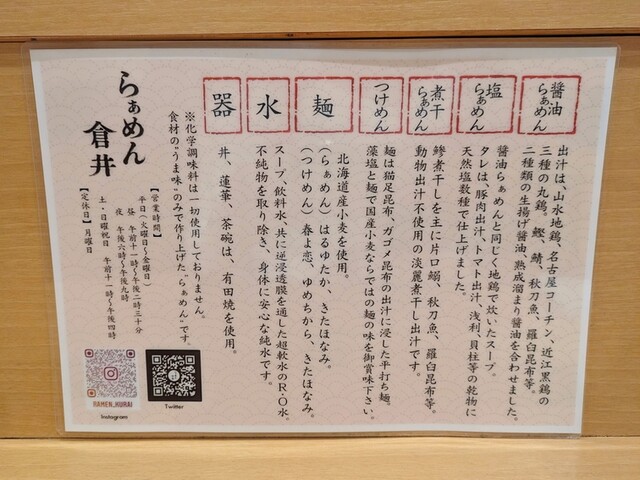 醤油らぁめん
出汁は、山水地鶏、名古屋コーチン、近江黒鶏の
三種の丸鶏。鰹、鯖、秋刀魚、羅臼昆布等。
二種類の生揚げ醤油、熟成溜まり醤油を合わせました。
塩らぁめん
醤油らぁめんと同じく地鶏で炊いたスープ。
タレは、豚肉出汁、トマト出汁、浅利、貝柱等の乾物に
天然塩数種で仕上げました。
煮干らぁめん
鯵煮干しを主に片口鰯、秋刀魚、羅臼昆布等。
動物出汁不使用の淡麗煮干し出汁です。
つけめん
麺は猫足昆布、ガゴメ昆布の出汁に浸した平打ち麺。
藻塩と麺で国産小麦ならではの麺の味を御賞味下さい。
麺
北海道産小麦を使用。
(らぁめん)はるゆたか、きたほなみ。
(つけめん)春よ恋、ゆめちから、きたほなみ。
水
スープ、飲料水、共に逆浸透膜を通した超軟水のR.O水。
不純物を取り除き、身体に安心な純水です。
器
丼、蓮華、茶碗は、有田焼を使用。
※化学調味料は一切使用しておりません。
食材の"うま味"のみで作り上げた"らぁめん"です。
らぁめん
倉井
【営業時間】
平日(火曜日〜金曜日)
昼 午前十一時〜午後二時三十分
夜 午後六時〜午後九時
土・日曜祝日 午前十一時〜午後四時
【定休日】月曜日
RAMEN_KURAI
Instagram
Twitter